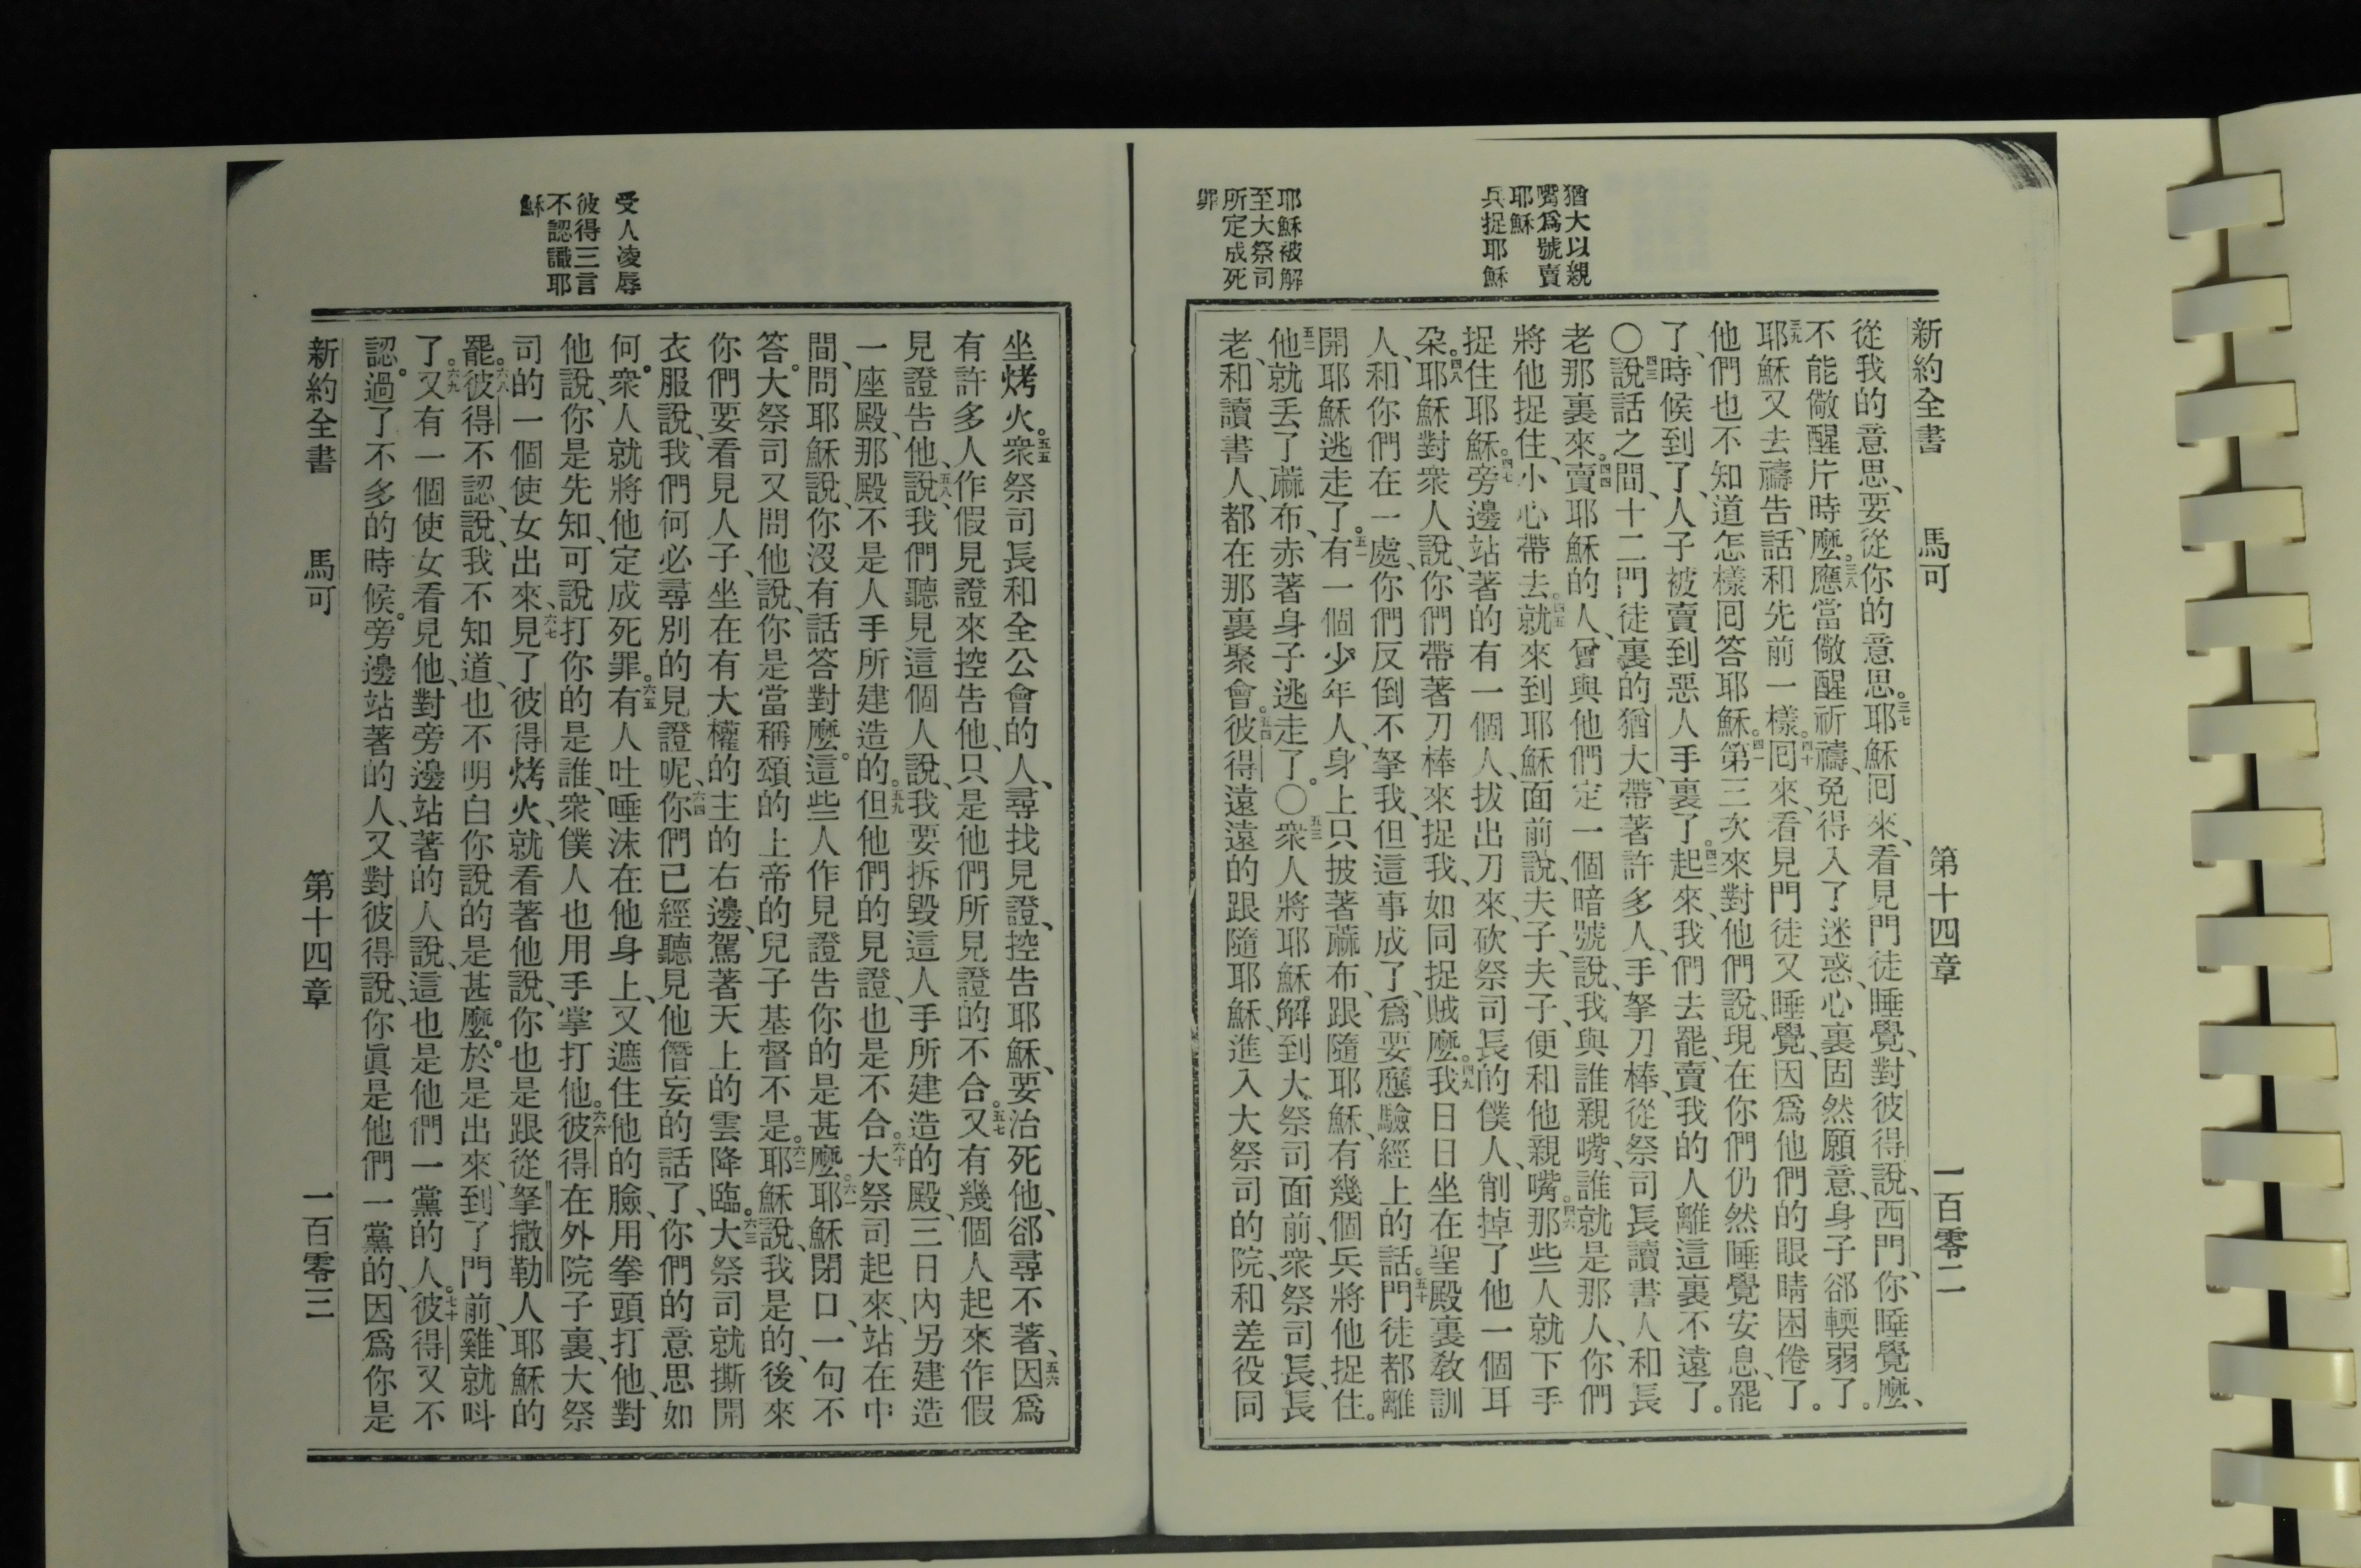 猶大以親
嘴爲號賣
耶穌
兵捉耶穌
耶穌被解
至大祭司
所定成死
罪
新約全書 馬可 第十四章 一百零二
從我的意思、要從你的意思。三七耶穌囘來、看見門徒睡覺、對彼得說、西門、你睡覺麼、
不能儆醒片時麼。三八應當儆醒祈禱、免得入了迷惑、心裏固然願意、身子郤輭弱了。
三九耶穌又去禱告、話和先前一樣。四十囘來、看見門徒又睡覺、因爲他們的眼睛困倦了。
他們也不知道怎樣囘答耶穌。四一第三次來對他們說、現在你們仍然睡覺安息、罷
了、時候到了、人子被賣到惡人手裏了。四二起來、我們去罷、賣我的人離這裏不遠了。
〇四三說話之間、十二門徒裏的猶大、帶著許多人、手拏刀棒、從祭司長讀書人和長
老那裏來。四四賣耶穌的人、曾與他們定一個暗號說、我與誰親嘴、誰就是那人、你們
將他捉住、小心帶去。四五就來到耶穌面前說、夫子、夫子、便和他親嘴。四六那些人就下手
捉住耶穌。四七旁邊站著的有一個人、拔出刀來、砍祭司長的僕人、削掉了他一個耳
朶。四八耶穌對衆人說、你們帶著刀棒來捉我、如同捉賊麼。四九我日日坐在聖殿裏敎訓
人、和你們在一處、你們反倒不拏我、但這事成了、爲要應驗經上的話。五十門徒都離
開耶穌逃走了。五一有一個少年人、身上只披著蔴布、跟隨耶穌、有幾個兵將他捉住。
五二他就丟了蔴布、赤著身子逃走了。〇五三衆人將耶穌解到大祭司面前、衆祭司長、長
老、和讀書人、都在那裏聚會。五四彼得遠遠的跟隨耶穌、進入大祭司的院、和差役同
受人凌辱
彼得三言
不認識耶
穌
坐烤火。五五衆祭司長和全公會的人、尋找見證、控告耶穌、要治死他、郤尋不著、五六因爲
有許多人作假見證來控告他、只是他們所見證的不合。五七又有幾個人起來作假
見證告他、五八說、我們聽見這個人說、我要拆毀這人手所建造的殿、三日內另建造
一座殿、那殿不是人手所建造的。五九但他們的見證、也是不合。六十大祭司起來、站在中
間、問耶穌說、你沒有話答對麼。這些人作見證告你的是甚麼。六一耶穌閉口、一句不
答。大祭司又問他說、你是當稱頌的上帝的兒子基督不是。六二耶穌說、我是的、後來
你們要看見人子、坐在有大權的主的右邊、駕著天上的雲降臨。六三大祭司就撕開
衣服說、我們何必尋別的見證呢、六四你們已經聽見他僭妄的話了、你們的意思如
何。衆人就將他定成死罪。六五有人吐唾沫在他身上、又遮住他的臉、用拳頭打他、對
他說、你是先知、可說打你的是誰、衆僕人也用手掌打他。六六彼得在外院子裏、大祭
司的一個使女出來、六七見了彼得烤火、就看著他說、你也是跟從拏撒勒人耶穌的
罷。六八彼得不認、說、我不知道、也不明白你說的是甚麼。於是出來、到了門前、雞就呌
了。六九又有一個使女看見他、對旁邊站著的人說、這也是他們一黨的人。七十彼得又不
認。過了不多的時候。旁邊站著的人、又對彼得說、你眞是他們一黨的、因爲你是
新約全書 馬可 第十四章 一百零三